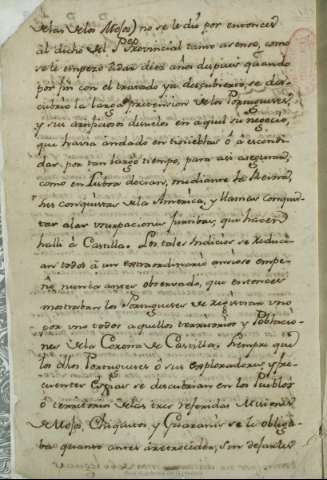 delas delos Moxos) no se le dió por entonces
al dicho del P.e Provincial tanto asenso, como
se le empezó â dar diez años despues quando
por fin con el tratado ya descubierto, se des-
cubrio la larga pretension delos Portugueses,
y sus artificiosos desvelos en aquel su negocio,
que havia andado en tinieblas ô a escondi-
das por tan largo tiempo, para asi asegurar,
como en Lisboa decian, mediante
sus conquistas dela America, y llaman conquis-
tas alas usurpaciones furtibas, que hacen
alli â Castilla. Los tales Indicios se reducí-
an todos â un extraordinario ansioso empe-
ño, nunca antes observado, que entonces
mostraban los Portugueses de registrar uno
por uno todos aquellos territorios y Poblacio-
nes dela Corona de Castilla; siempre que
los dhos Portugueses ô sus exploradores y fre-
cuentes Espias se descubrian en los Pueblos
ô territorios delas tres referidas Misiones
de Moxos, Chiquitos y Guaranis se les obliga-
ba quanto antes â retroceder, sin dejarles